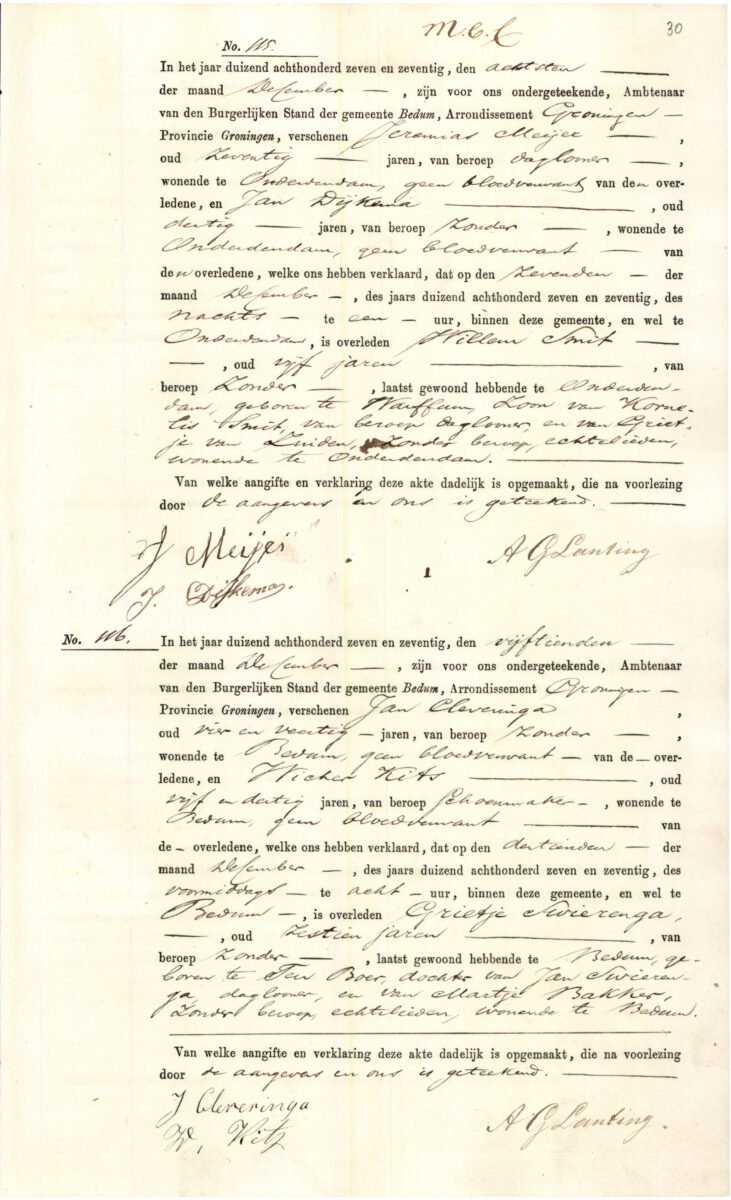 M.C.L
30
No. 115.
In het jaar duizend achthonderd zeven en zeventig, den achtsten
der maand December —, zijn voor ons ondergeteekende, Ambtenaar
van den Burgerlijken Stand der gemeente Bedum, Arrondissement Groningen —
Provincie Groningen, verschenen Jeremias Meijer —,
oud Zeventig — jaren, van beroep daglooner —,
wonende te Onderdendam, geen bloedverwant van den over-
ledene, en Jan Dijkema —, oud
dertig — jaren, van beroep Zonder —, wonende te
Onderdendam, geen bloedverwant — van
den overledene, welke ons hebben verklaard, dat op den Zevenden — der
maand December —, des jaars duizend achthonderd zeven en zeventig, des
nachts — te een — uur, binnen deze gemeente, en wel te
Onderdendam, is overleden Willem Smit —
—, oud vijf jaren —, van
beroep Zonder —, laatst gewoond hebbende te Onderden-
dam, geboren te Warffum, Zoon van Korne-
lis Smit, van beroep daglooner, en van Griet-
je van Zuiden, Zonder beroep, echtelieden,
wonende te Onderdendam. —
Van welke aangifte en verklaring deze akte dadelijk is opgemaakt, die na voorlezing
door de aangevers en ons is geteekend. —
J Meijer
A G Lanting
J. Dijkema.
No. 116.
In het jaar duizend achthonderd zeven en zeventig, den vijftienden —
der maand December —, zijn voor ons ondergeteekende, Ambtenaar
van den Burgerlijken Stand der gemeente Bedum, Arrondissement Groningen —
Provincie Groningen, verschenen Jan Cleveringa,
oud vier en veertig — jaren, van beroep Zonder —,
wonende te Bedum, geen bloedverwant — van de — over-
ledene, en Wicher Kits —, oud
vijf en dertig jaren, van beroep Schoenmaker —, wonende te
Bedum, geen bloedverwant — van
de — overledene, welke ons hebben verklaard, dat op den dertienden — der
maand December —, des jaars duizend achthonderd zeven en zeventig, des
voormiddags — te acht — uur, binnen deze gemeente, en wel te
Bedum —, is overleden Grietje Swierenga,
—, oud Zestien jaren —, van
beroep Zonder —, laatst gewoond hebbende te Bedum, ge-
boren te Ten Boer, dochter van Jan Swieren-
ga, daglooner, en van Martje Bakker,
Zonder beroep, echtelieden, wonende te Bedum.
Van welke aangifte en verklaring deze akte dadelijk is opgemaakt, die na voorlezing
door de aangevers en ons is geteekend. —
J Cleveringa
W, Kits
A G Lanting.